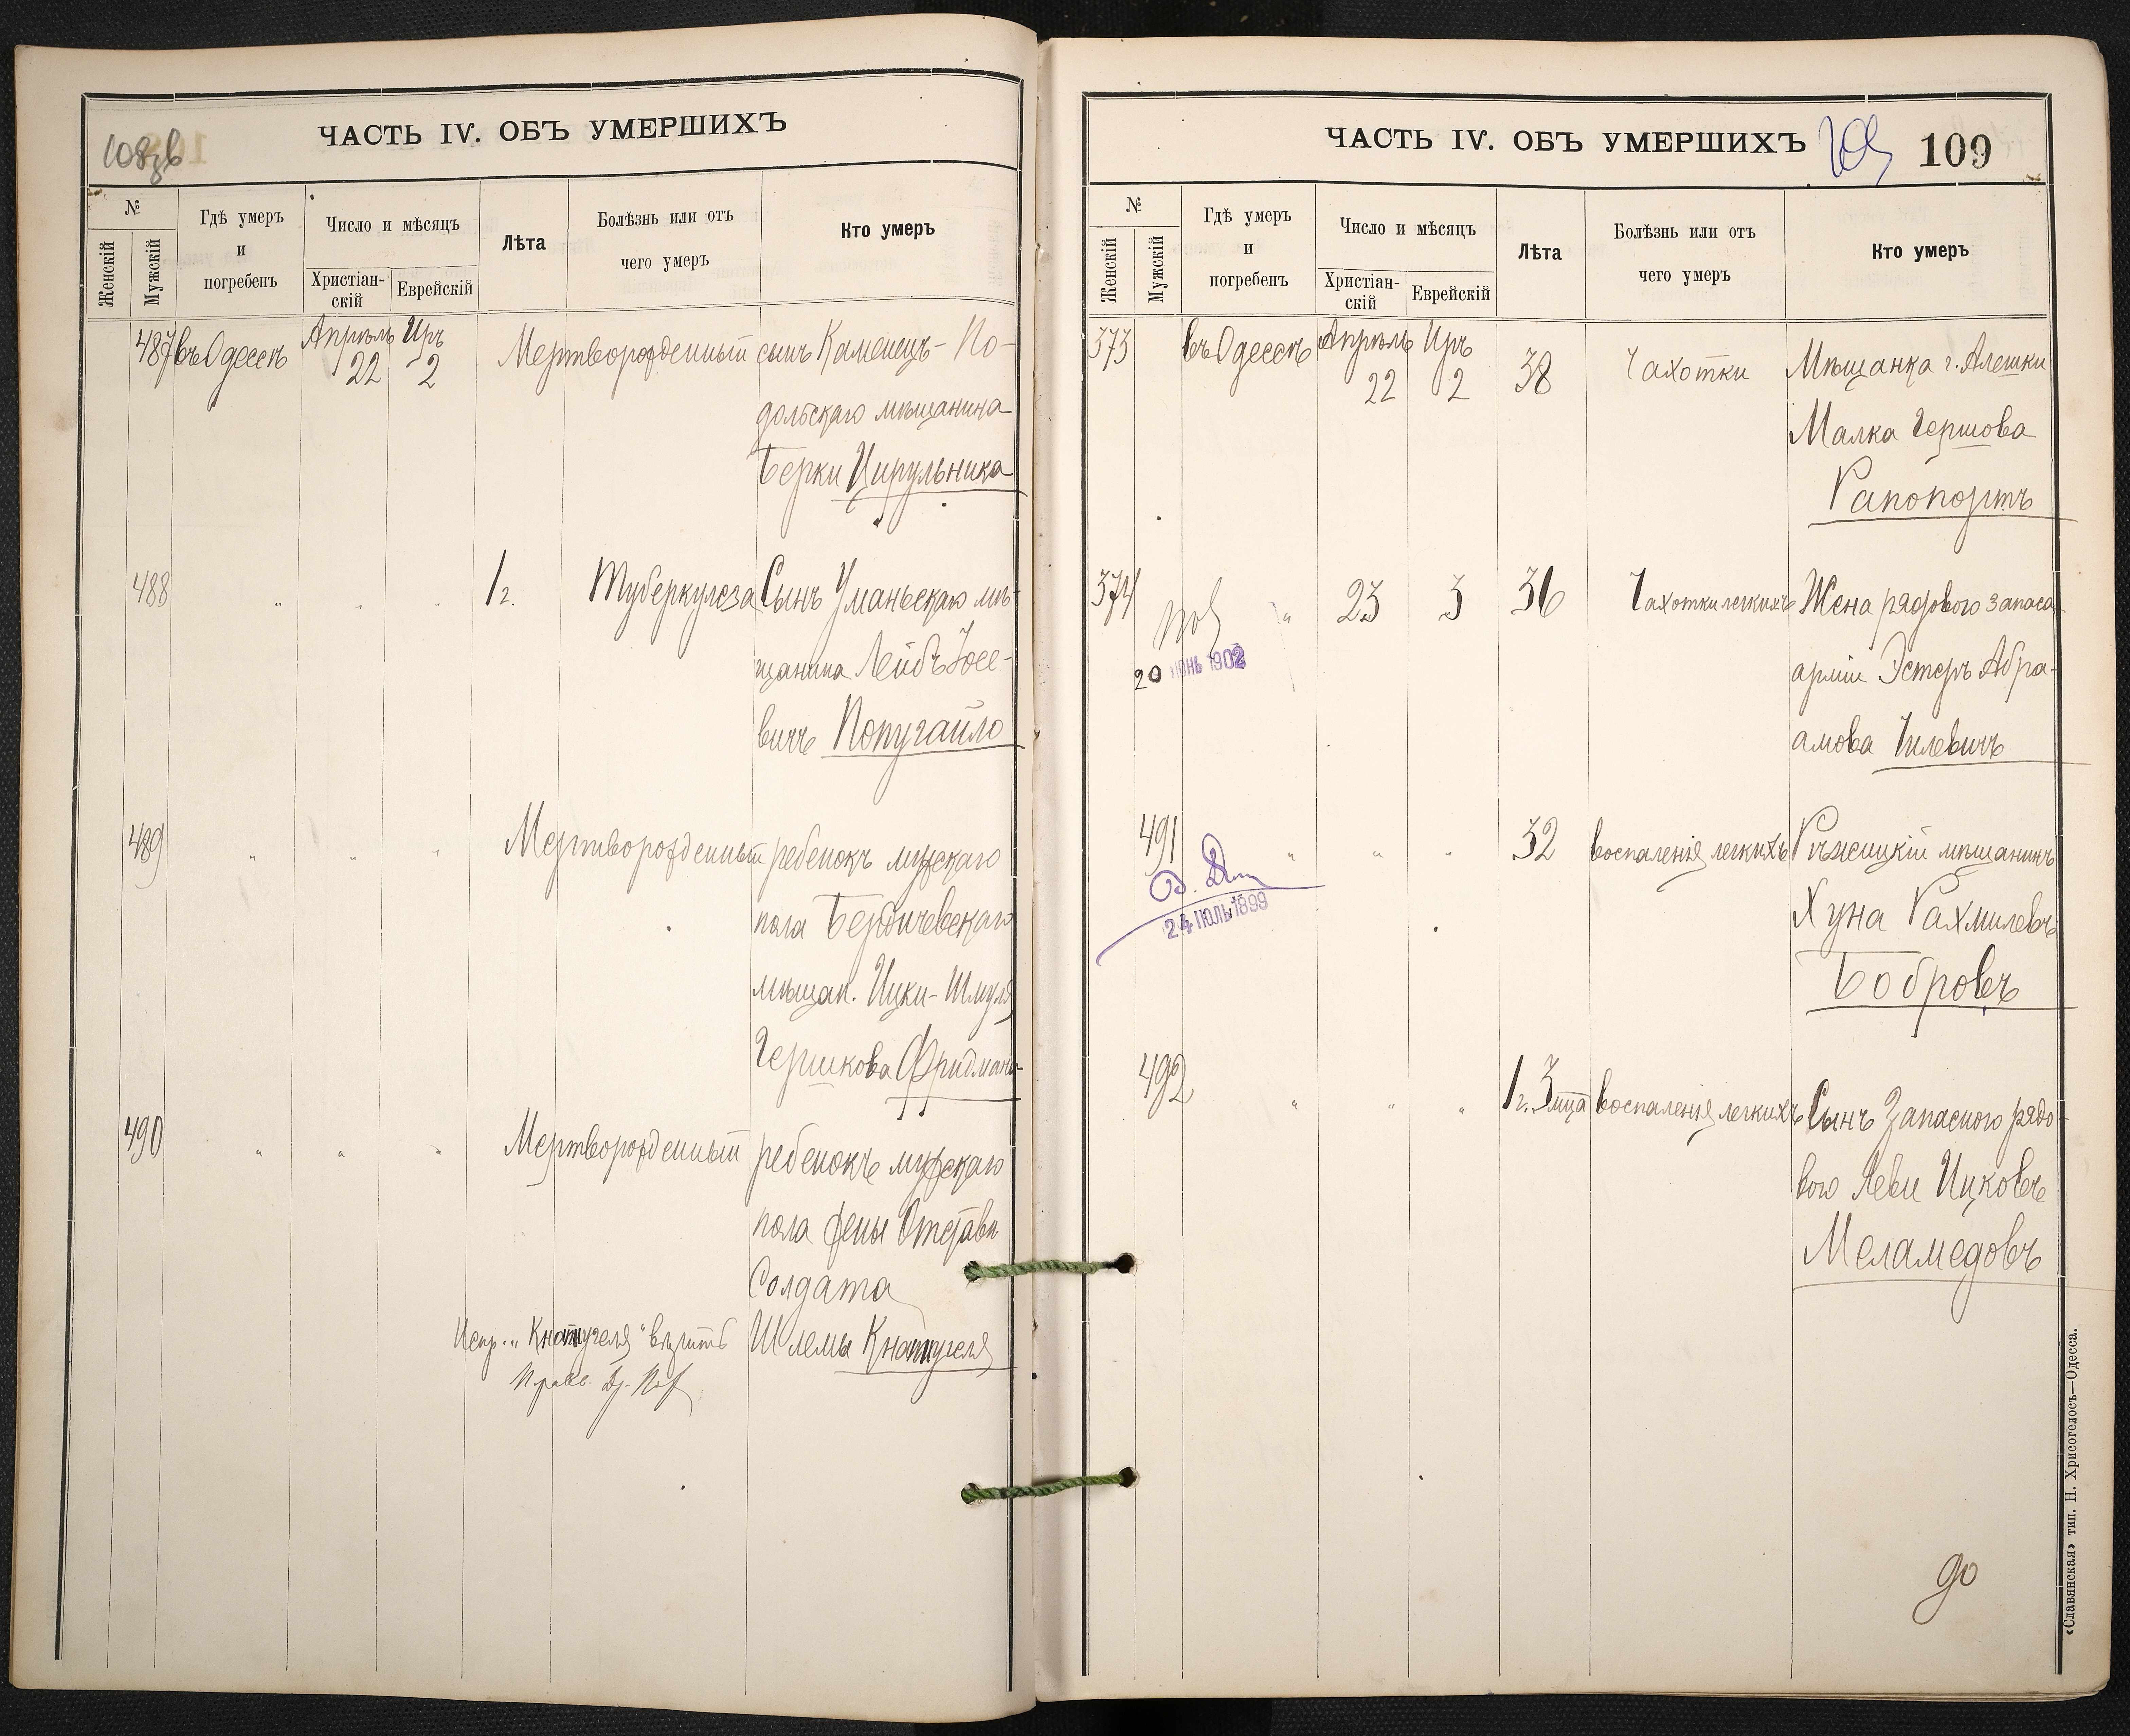 108зв
ЧАСТЬ IV. ОБЪ УМЕРШИХЪ
№
Женскій
Мужскій
Гдѣ умеръ
и
погребенъ
Число и мѣсяцъ
Христіан-
скій
Еврейскій
Лѣта
Болѣзнь или отъ
чего умеръ
Кто умеръ
487 въ Одессѣ Апрѣль 22 Иръ 2 Мертворожденный сынъ Каменецъ-По-
дольскаго мѣщанина
Берки Цирульника
488 " " " 1 г. Туберкулеза Сынъ Уманьскаго мѣ-
щанина Лейбъ Іосе-
вичъ Попугайло
489 " " " Мертворожденный ребенокъ мужскаго
пола Бердичевскаго
мѣщан. Ицки-Шмуля
Гершкова Фридмана
490 " " " Мертворожденный ребенокъ мужскаго
пола жены Отставн
Солдата
Шлемы
Испр.
109
ЧАСТЬ IV. ОБЪ УМЕРШИХЪ
№
Женскій
Мужскій
Гдѣ умеръ
и
погребенъ
Число и мѣсяцъ
Христіан-
скій
Еврейскій
Лѣта
Болѣзнь или отъ
чего умеръ
Кто умеръ
373 въ Одессѣ Апрѣль 22 Иръ 2 38 Чахотки Мѣщанка г. Алешки
Малка Гершова
Рапопортъ
374 " 23 3 36 Чахотки легкихъ Жена рядового запаса
арміи Эстеръ Абра-
амова Гилевичъ
20 ІЮНЬ 1902
491 " " " 32 воспаленія легкихъ Рѣжицкій мѣщанинъ
Хуна Рахмилевъ
Бобровъ
24 ІЮЛЬ 1899
492 " " " 1 г. 3 мца воспаленія легкихъ Сынъ Запасного рядо-
вого Леви Ицковъ
Меламедовъ
«Славянская» тип. Н. Хрисогелосъ—Одесса.